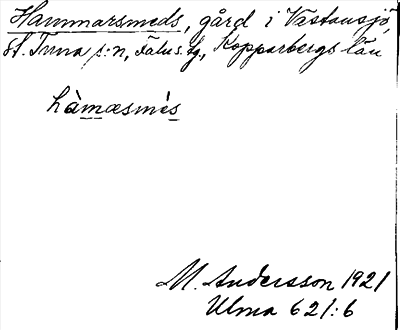 Hammarsmeds, gård i Västansjö,
St. Tuna s:n, Falu s. lg., Kopparbergs län
hàmæsmès
M. Andersson 1921
Ulma 621:6